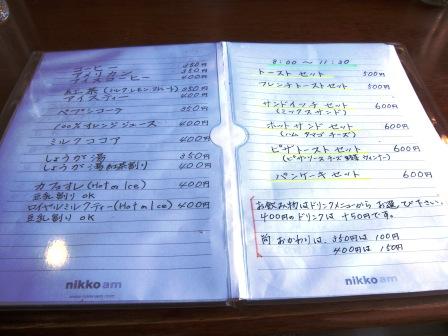 コーヒー 350円
アメリカン 350円
アイスコーヒー 400円
紅茶(ミルク レモン ストレート) 350円
アイスティー 400円
ペプシコーラ 350円
100%オレンジジュース 400円
ミルクココア 400円
しょうが湯 350円
しょうが湯 紅茶割り 400円
カフェオレ(Hot or Ice) 400円
豆乳割り OK
ロイヤルミルクティー(Hot or Ice) 400円
豆乳割り OK
nikko am
8:00 〜 11:30
トースト セット 500円
フレンチトーストセット 500円
サンドイッチ セット 600円
(ミックスサンド)
ホットサンド セット 600円
(ハム タマゴ チーズ)
ピザトースト セット 600円
(ピザソース チーズ 野菜 ウィンナー)
パンケーキセット 600円
お飲み物はドリンクメニューから お選び下さい。
400円のドリンクは +50円です。
尚 おかわりは、350円は 100円
400円は 150円
nikko am